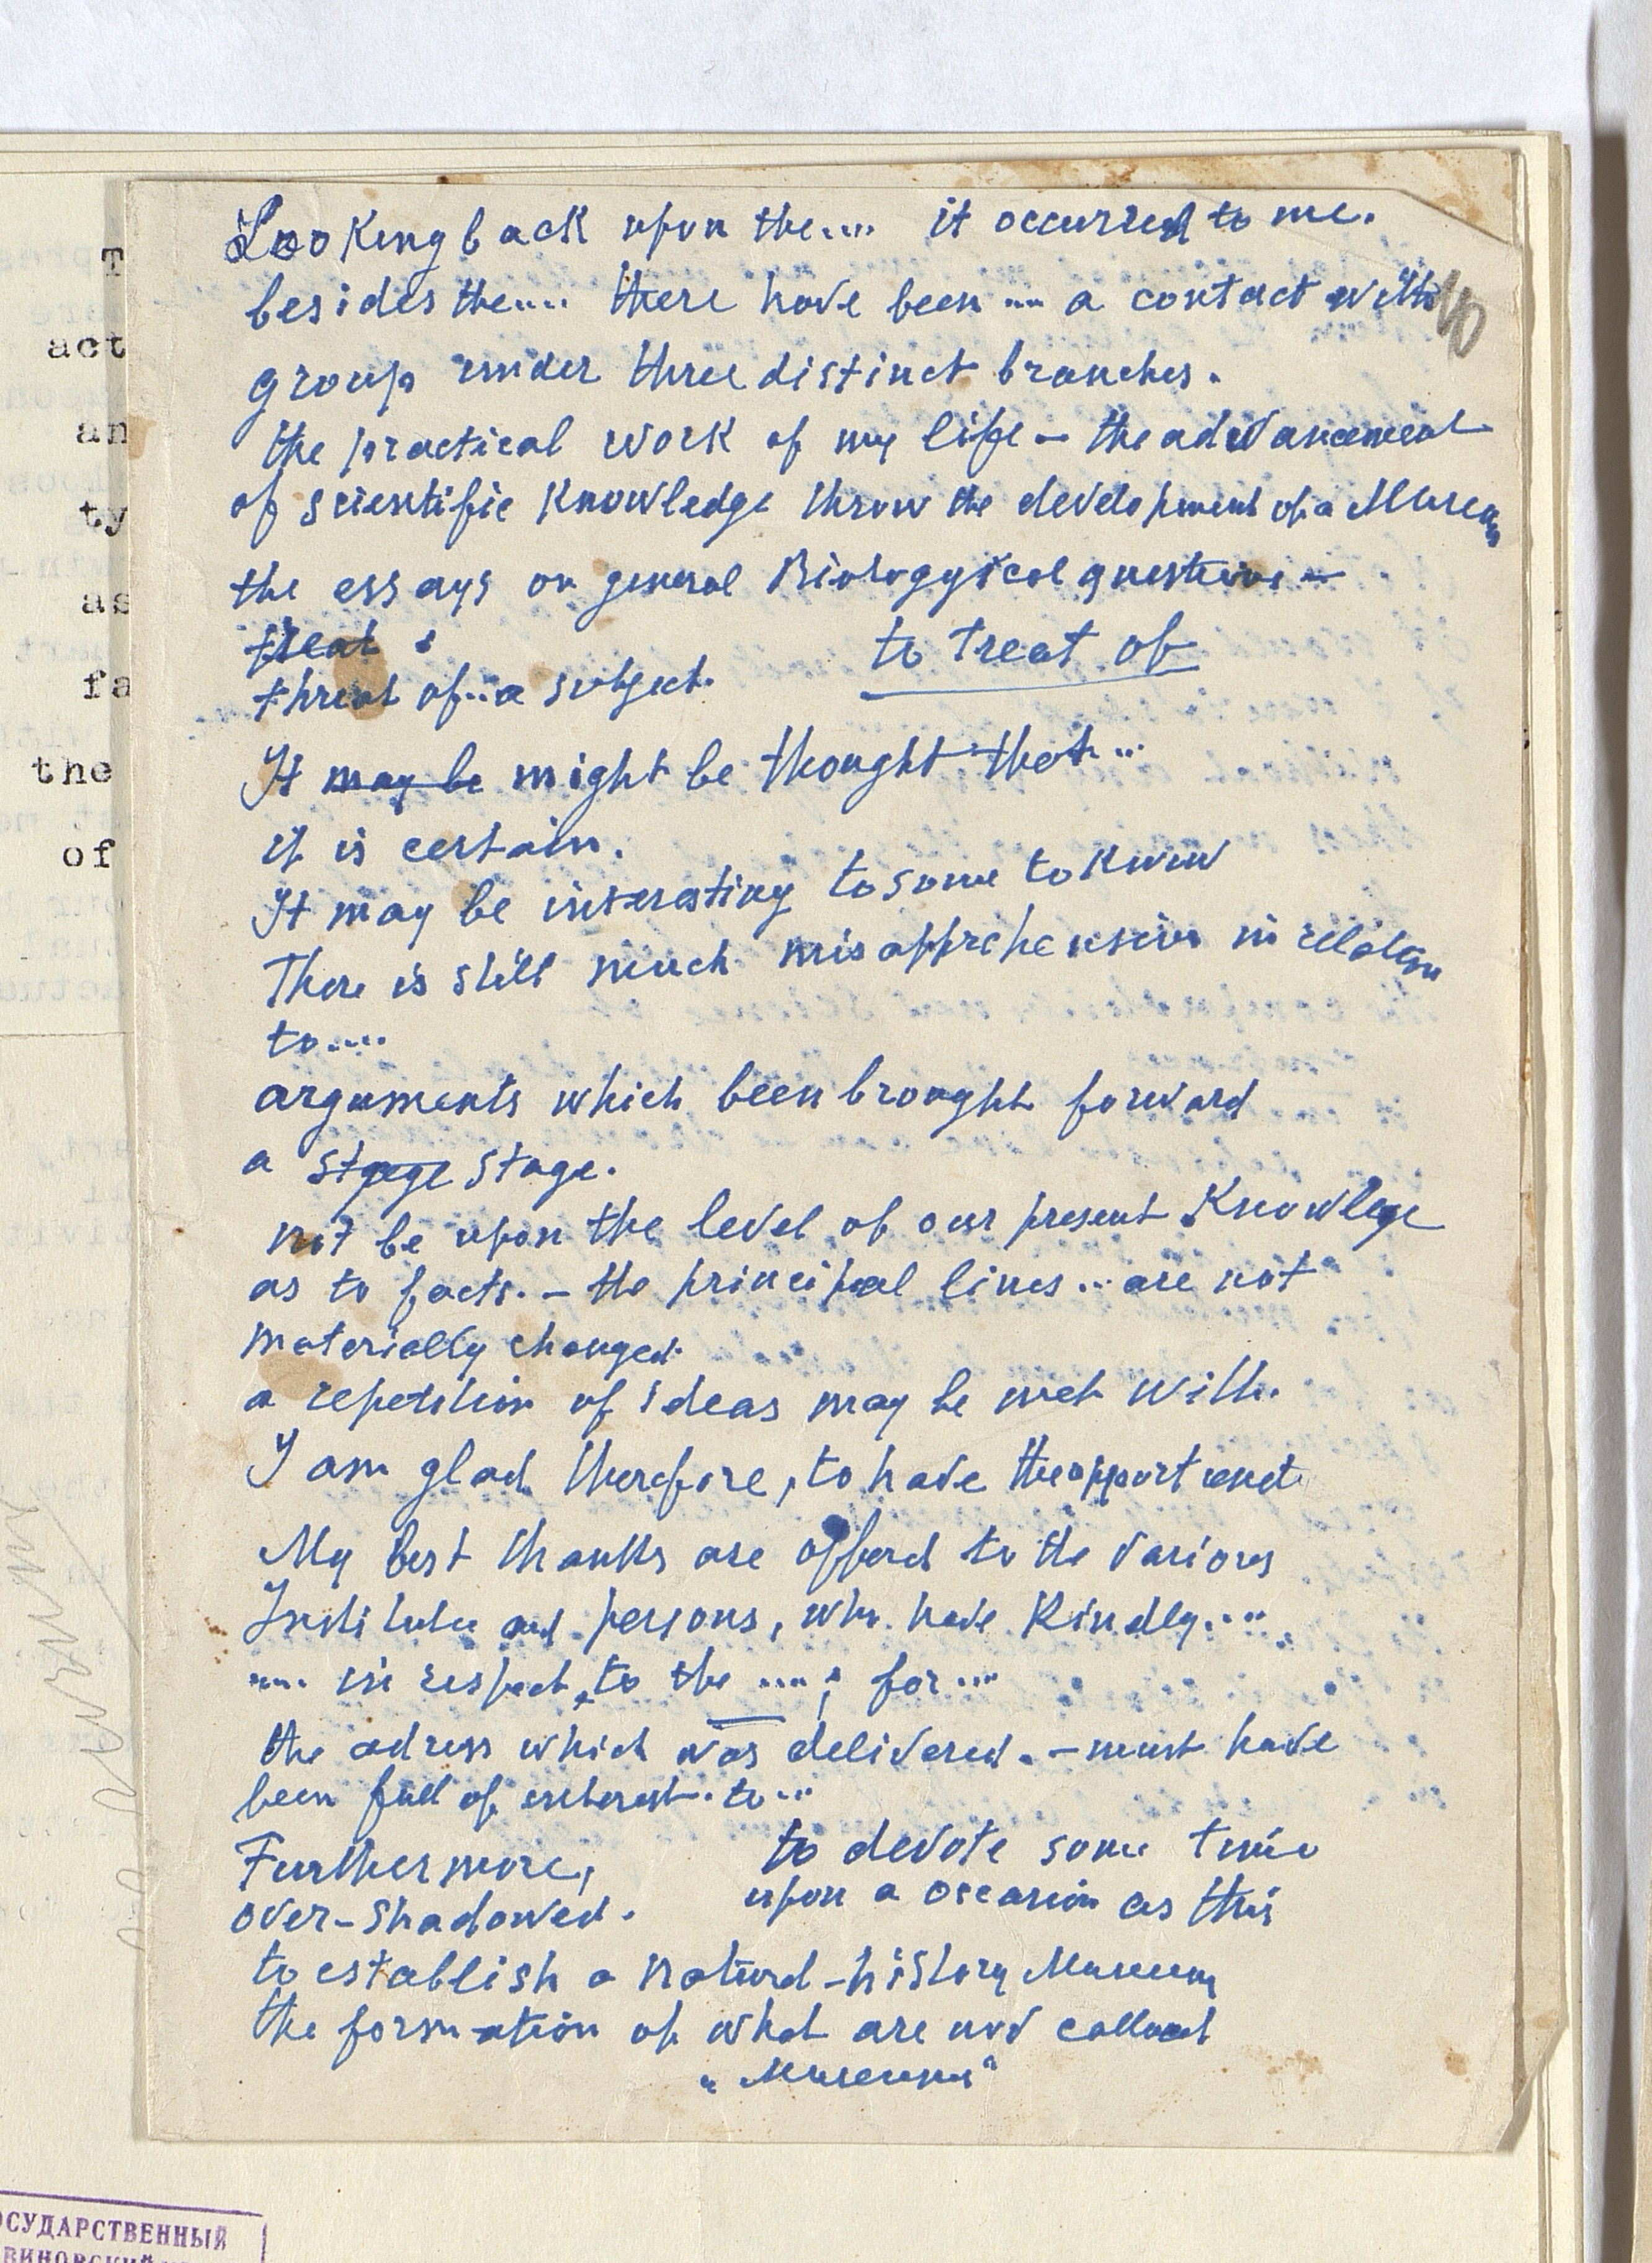 Looking back upon the.... it occurred to me.
besides the.... there have been .... a contact with
10
group under three distinct branches.
the practical work of my life — the advancement
of scientific Knowledge throw the development of a Museum
the essays on general Biologysical questions —
treat :
to treat of
threat of... a subject.
It may be might be thought that...
it is certain.
It may be interesting to some to know
There is still much misapprehension in relation
to....
arguments which been brought forward
a stgege stage.
not be upon the level of our present Knowlege
as to facts. — the principal lines... are not
materially changed.
a repetition of ideas may be met with.
I am glad therefore, to have the opportunit
My best thanks are offerd to the various
Institutes and persons, who have Kindly....
.... in respect to the ....; for...
the adress which was delivered. — must have
been full of interest. to...
Furthermore,
to devote some time
over-shadowed.
upon a occasion as this
to establish a natural-history Museum
the formation of what are now called
„Museums"
T
act
an
ty
as
fa
the
of
ОСУДАРСТВЕННЫЙ